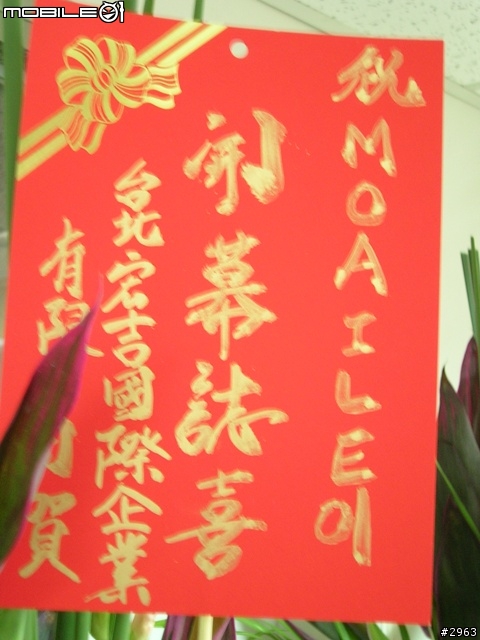 MOBILE01
祝MOAILE01
開幕誌喜
台北宏吉國際企業
有限 司賀
#2963